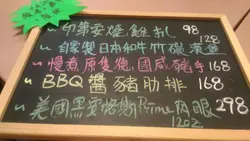 印第安燒餅扎 98
128
自家製日本和牛竹碳漢堡
慢煮原隻德國咸豬手 168
BBQ醬豬肋排 168
美國黑安格斯Prime肉眼 298
12oz